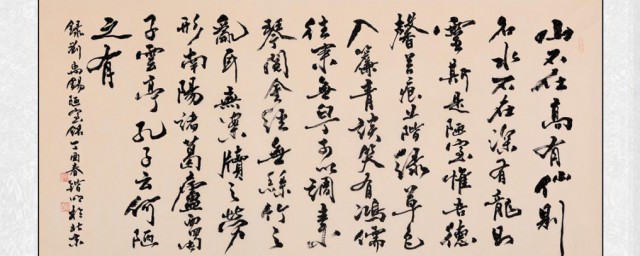 山不在高有仙則
名水不在深有龍則
靈斯是陋室惟吾德
馨苔痕上階綠草色
入簾青談笑有鴻儒
往来無白丁可以調素
琴閱金經無絲竹之
亂耳無案牘之勞
形南陽諸葛廬西蜀
子雲亭孔子云何陋
之有
錄劉禹錫陋室銘丁酉春於北京